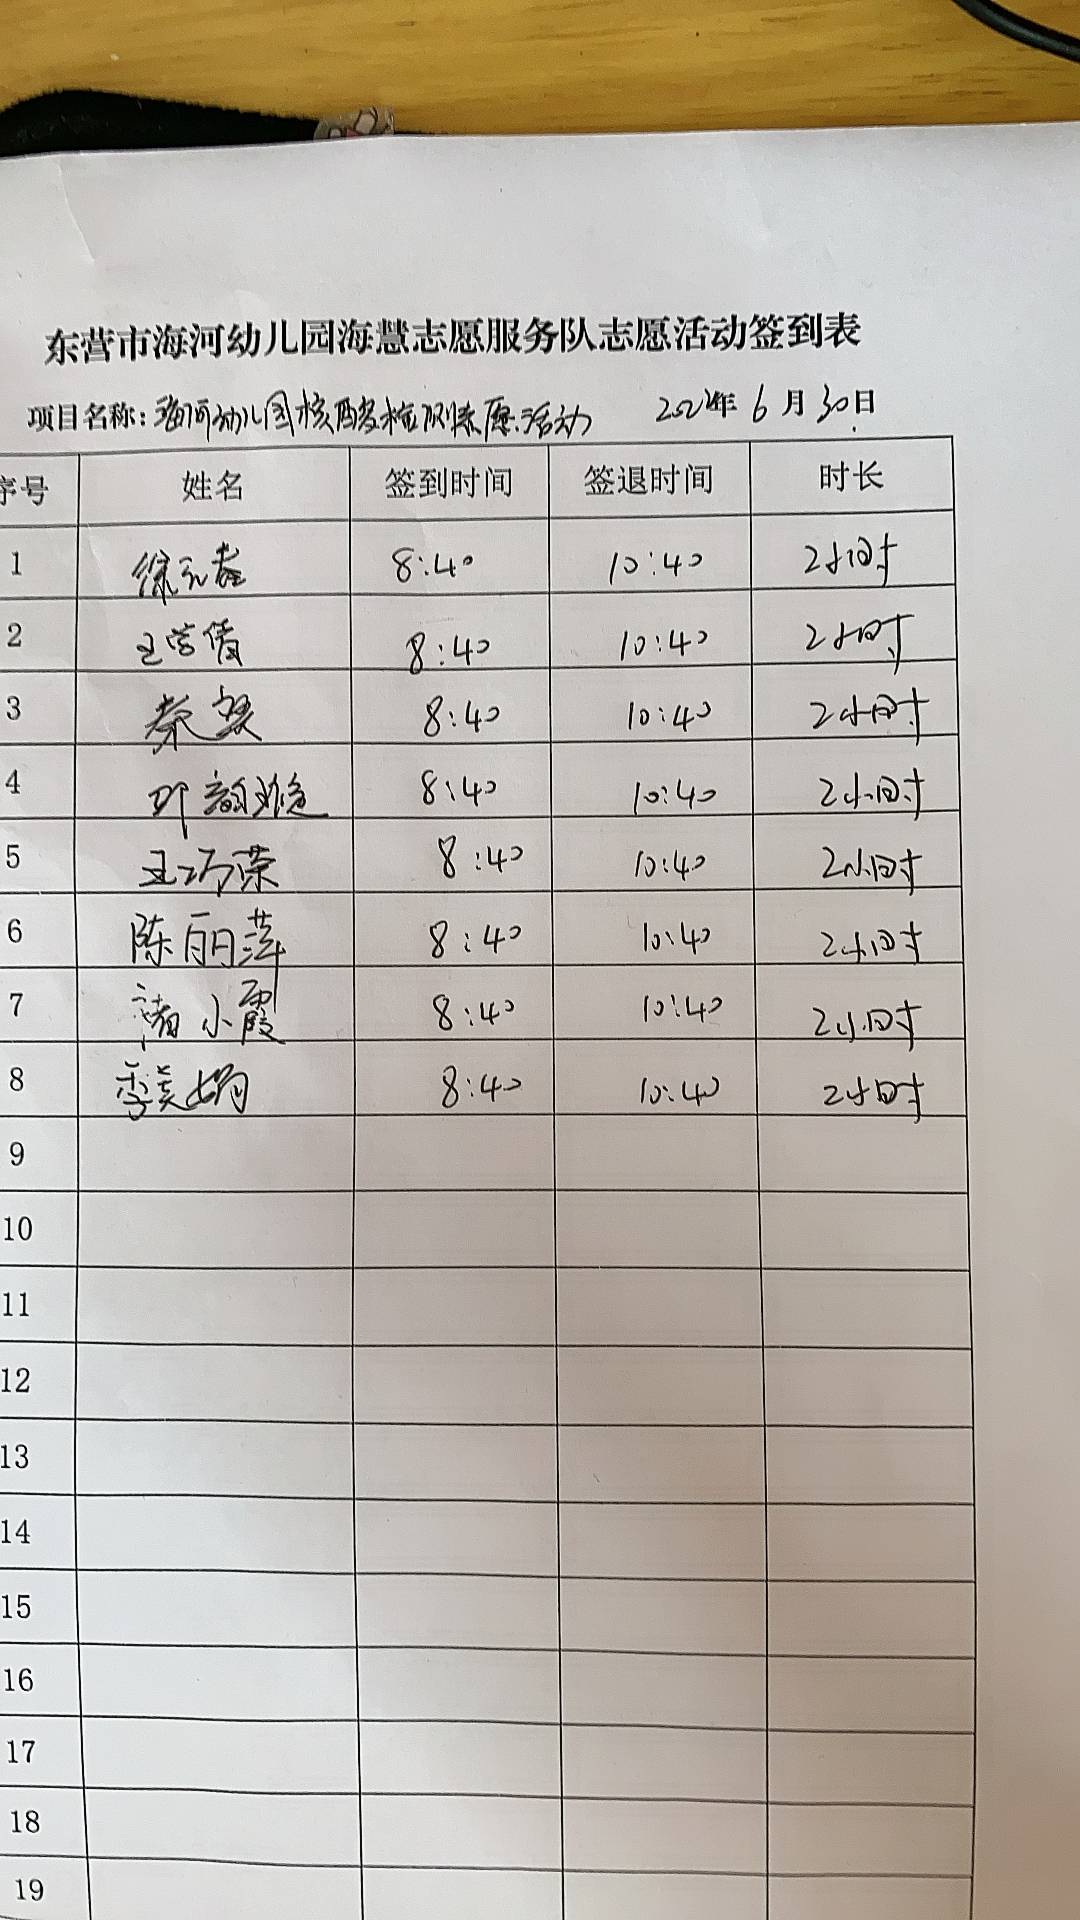 东营市海河幼儿园海慧志愿服务队志愿活动签到表
项目名称:海河幼儿园核酸检测志愿活动 2022年 6 月 30 日
序号 姓名 签到时间 签退时间 时长
1 徐元春 8:40 10:40 2小时
2 王学倩 8:40 10:40 2小时
3 秦 8:40 10:40 2小时
4 邓韵雅 8:40 10:40 2小时
5 王巧荣 8:40 10:40 2小时
6 陈丽萍 8:40 10:40 2小时
7 褚小霞 8:40 10:40 2小时
8 季美娟 8:40 10:40 2小时
9
10
11
12
13
14
15
16
17
18
19